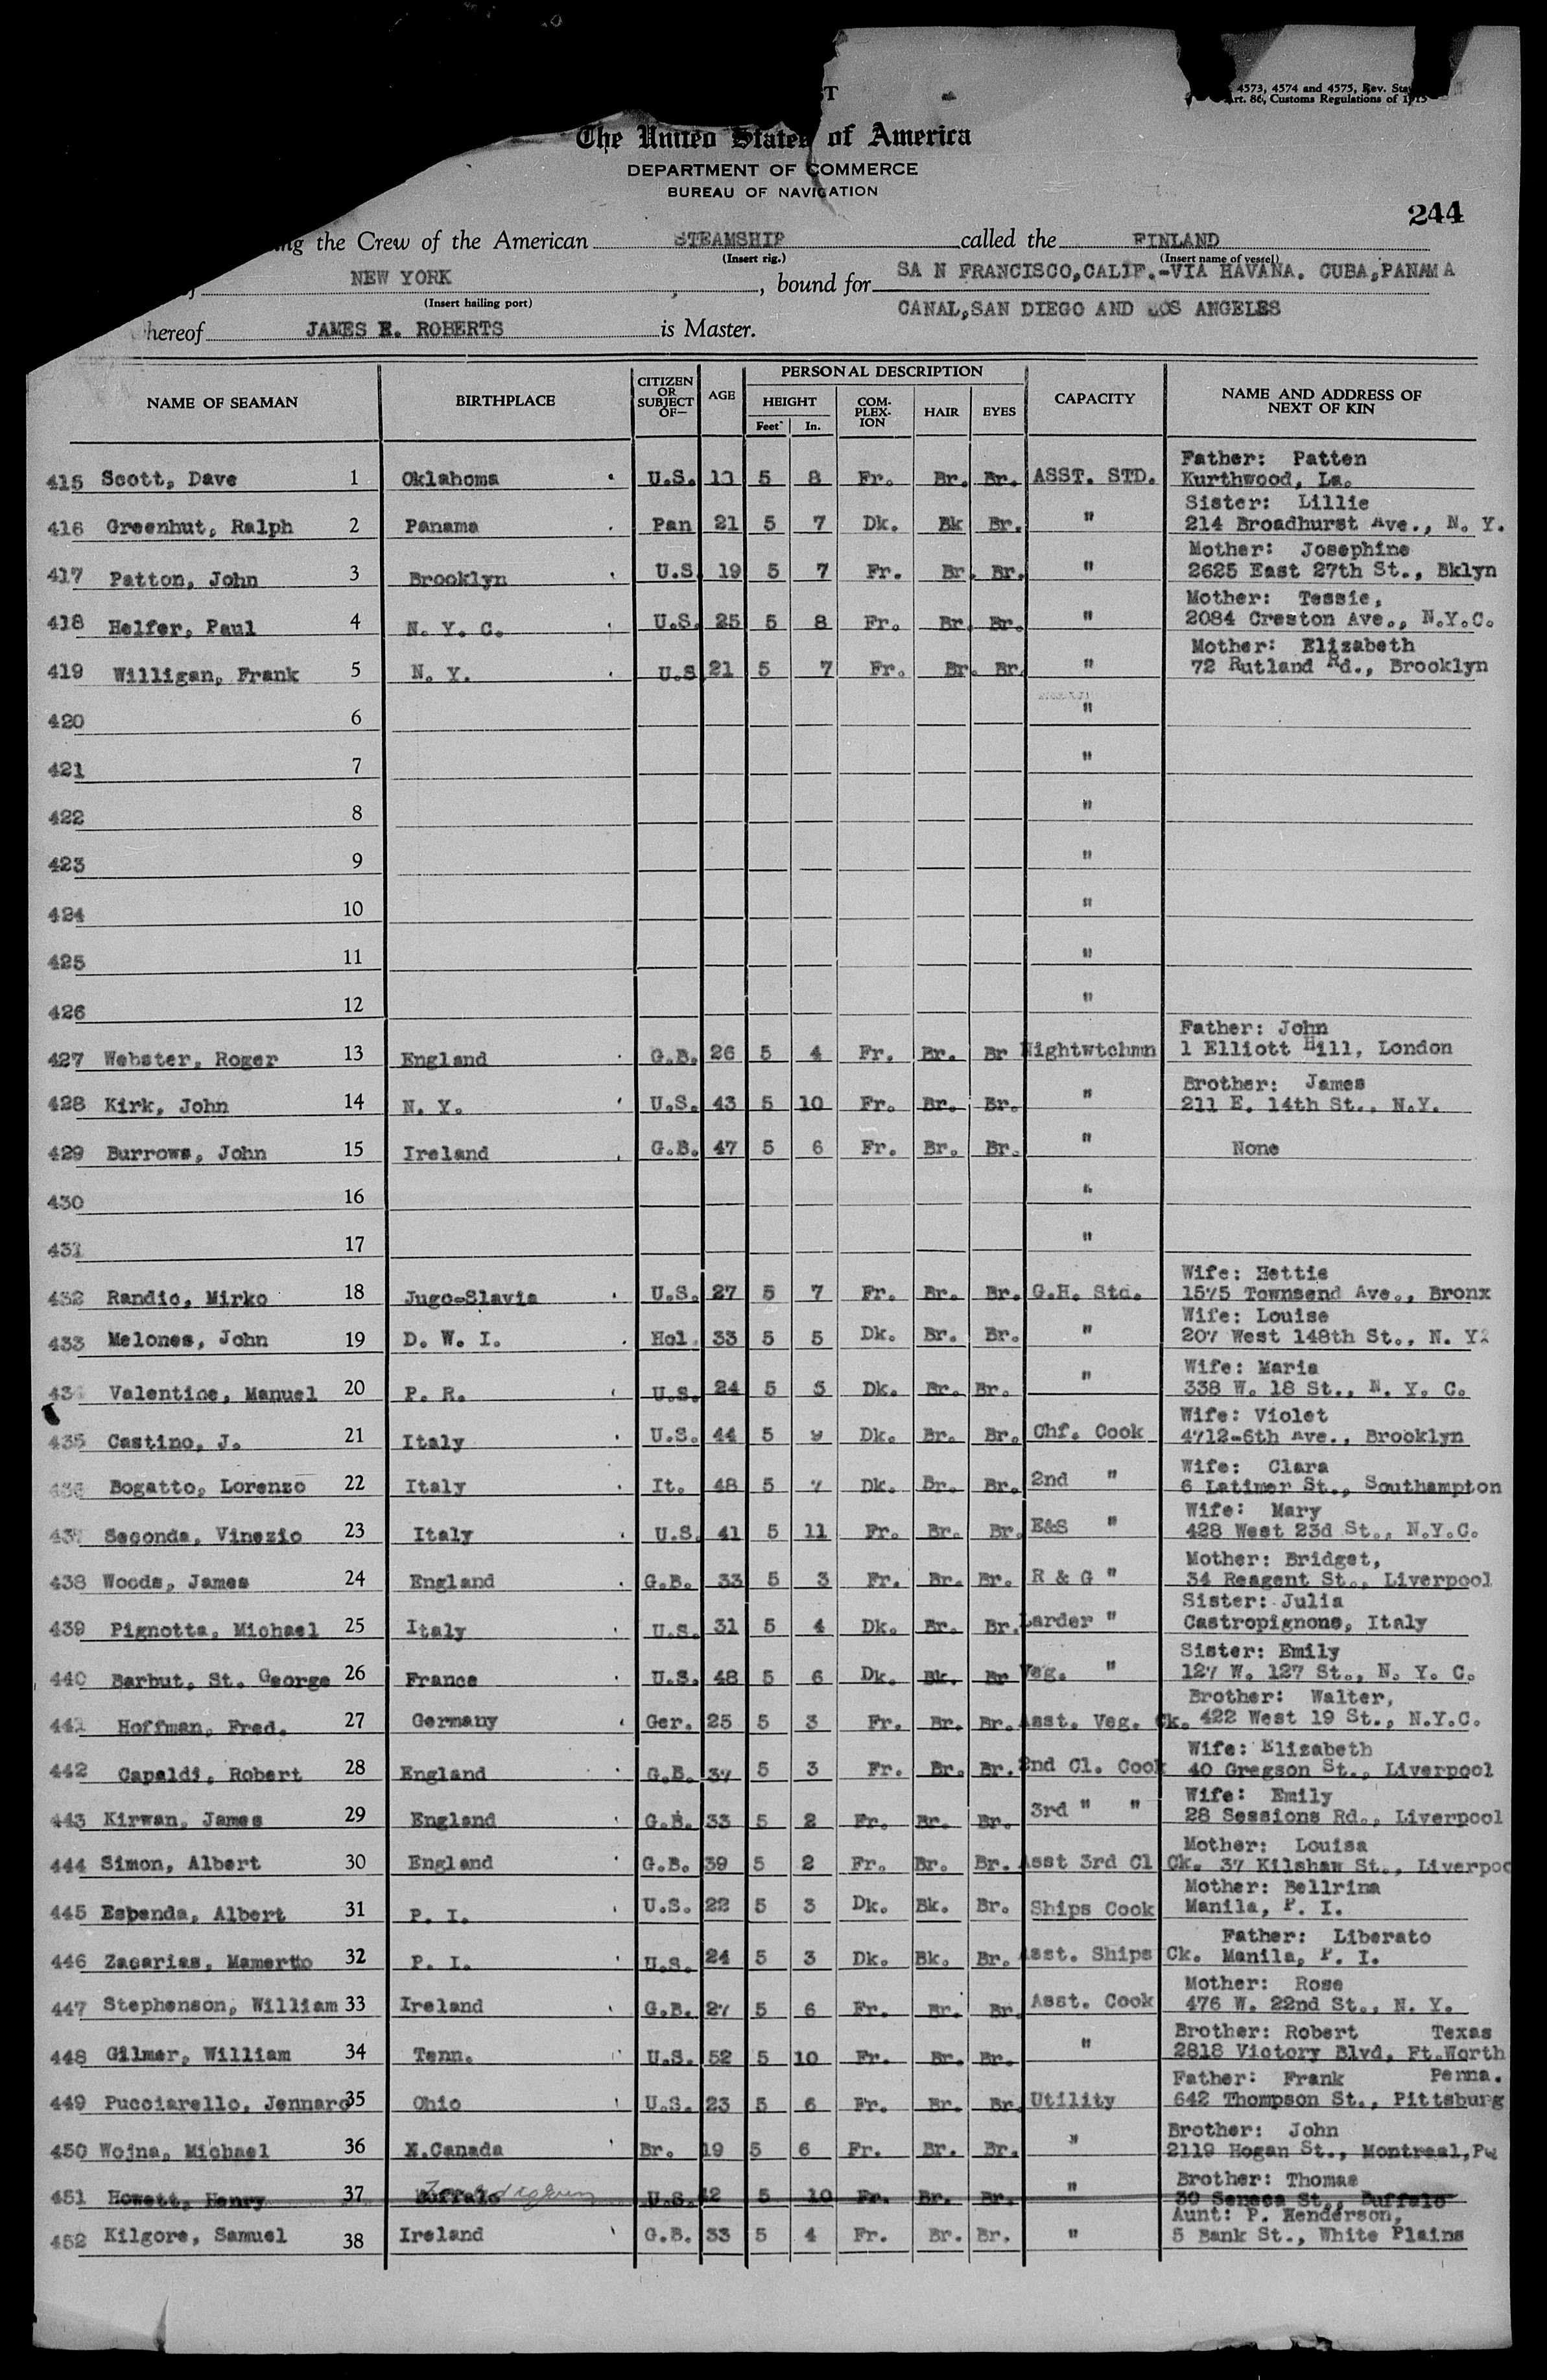 ST
4573, 4574 and 4575, Rev. Sta
Art. 86, Customs Regulations of 1915
The United States of America
DEPARTMENT OF COMMERCE
BUREAU OF NAVIGATION
244
ng the Crew of the American STEAMSHIP called the FINLAND
(Insert rig.) (Insert name of vessel)
NEW YORK, bound for SA N FRANCISCO,CALIF.-VIA HAVANA. CUBA,PANAMA
(Insert hailing port)
CANAL,SAN DIEGO AND LOS ANGELES
hereof JAMES E. ROBERTS is Master.
NAME OF SEAMAN BIRTHPLACE CITIZEN OR SUBJECT OF— AGE PERSONAL DESCRIPTION HEIGHT Feet In. COM-PLEX-ION HAIR EYES CAPACITY NAME AND ADDRESS OF NEXT OF KIN
Father: Patten
415 Scott, Dave 1 Oklahoma U.S. 5 8 Fr. Br. Br. ASST. STD. Kurthwood, La.
Sister: Lillie
416 Greenhut, Ralph 2 Panama Pan 21 5 7 Dk. Bk Br. " 214 Broadhurst Ave., N. Y.
Mother: Josephine
417 Patton, John 3 Brooklyn U.S. 19 5 7 Fr. Br. Br. " 2625 East 27th St., Bklyn
Mother: Tessie,
418 Helfer, Paul 4 N. Y. C. U.S. 25 5 8 Fr. Br. Br. " 2084 Creston Ave., N.Y.C.
Mother: Elizabeth
419 Willigan, Frank 5 N. Y. U.S 21 5 7 Fr. Br. Br. " 72 Rutland Rd., Brooklyn
420 6 "
421 7 "
422 8 "
423 9 "
424 10 "
425 11 "
426 12 "
Father: John
427 Webster, Roger 13 England G.B. 26 5 4 Fr. Br. Br Nightwtchmn 1 Elliott Hill, London
Brother: James
428 Kirk, John 14 N. Y. U.S. 43 5 10 Fr. Br. Br. " 211 E. 14th St., N.Y.
429 Burrows, John 15 Ireland G.B. 47 5 6 Fr. Br. Br. " None
430 16 "
431 17 "
Wife: Hettie
432 Randic, Mirko 18 Jugo-Slavia U.S. 27 5 7 Fr. Br. Br. G.H. Std. 1575 Townsend Ave., Bronx
Wife: Louise
433 Melones, John 19 D. W. I. Hol. 33 5 5 Dk. Br. Br. " 207 West 148th St., N. Y.
Wife: Maria
434 Valentine, Manuel 20 P. R. U.S. 24 5 5 Dk. Br. Br. " 338 W. 18 St., N. Y. C.
Wife: Violet
435 Castino, J. 21 Italy U.S. 44 5 9 Dk. Br. Br. Chf. Cook 4712-6th Ave., Brooklyn
Wife: Clara
436 Bogatto, Lorenzo 22 Italy It. 48 5 7 Dk. Br. Br. 2nd " 6 Latimer St., Southampton
Wife: Mary
437 Seconda, Vinezio 23 Italy U.S. 41 5 11 Fr. Br. Br. E&S " 428 West 23d St., N.Y.C.
Mother: Bridget,
438 Woods, James 24 England G.B. 33 5 3 Fr. Br. Br. R & G " 34 Reagent St., Liverpool
Sister: Julia
439 Pignotta, Michael 25 Italy U.S. 31 5 4 Dk. Br. Br. Larder " Castropignone, Italy
Sister: Emily
440 Barbut, St. George 26 France U.S. 48 5 6 Dk. Bk. Br Veg. " 127 W. 127 St., N. Y. C.
Brother: Walter,
441 Hoffman, Fred. 27 Germany Ger. 25 5 3 Fr. Br. Br. Asst. Veg. Ck. 422 West 19 St., N.Y.C.
Wife: Elizabeth
442 Capaldi, Robert 28 England G.B. 37 5 3 Fr. Br. Br. 2nd Cl. Cook 40 Gregson St., Liverpool
Wife: Emily
443 Kirwan, James 29 England G.B. 33 5 2 Fr. Br. Br. 3rd " " 28 Sessions Rd., Liverpool
Mother: Louisa
444 Simon, Albert 30 England G.B. 39 5 2 Fr. Br. Br. Asst 3rd Cl Ck. 37 Kilshaw St., Liverpoo
Mother: Bellrina
445 Espenda, Albert 31 P. I. U.S. 22 5 3 Dk. Bk. Br. Ships Cook Manila, P. I.
Father: Liberato
446 Zacarias, Mamerto 32 P. I. U.S. 24 5 3 Dk. Bk. Br. Asst. Ships Ck. Manila, P. I.
Mother: Rose
447 Stephenson, William 33 Ireland G.B. 27 5 6 Fr. Br. Br. Asst. Cook 476 W. 22nd St., N. Y.
Brother: Robert Texas
448 Gilmer, William 34 Tenn. U.S. 52 5 10 Fr. Br. Br. " 2818 Victory Blvd, Ft.Worth
Father: Frank Penna.
449 Pucciarello, Jennaro 35 Ohio U.S. 23 5 6 Fr. Br. Br. Utility 642 Thompson St., Pittsburg
Brother: John
450 Wojna, Michael 36 N.Canada Br. 19 5 6 Fr. Br. Br. " 2119 Hogan St., Montreal,
Brother: Thomas
451 Howett, Henry 37 Buffalo U.S. 42 5 10 Fr. Br. Br. " 30 Seneca St., Buffalo
Aunt: P. Henderson,
452 Kilgore, Samuel 38 Ireland G.B. 33 5 4 Fr. Br. Br. " 5 Bank St., White Plains